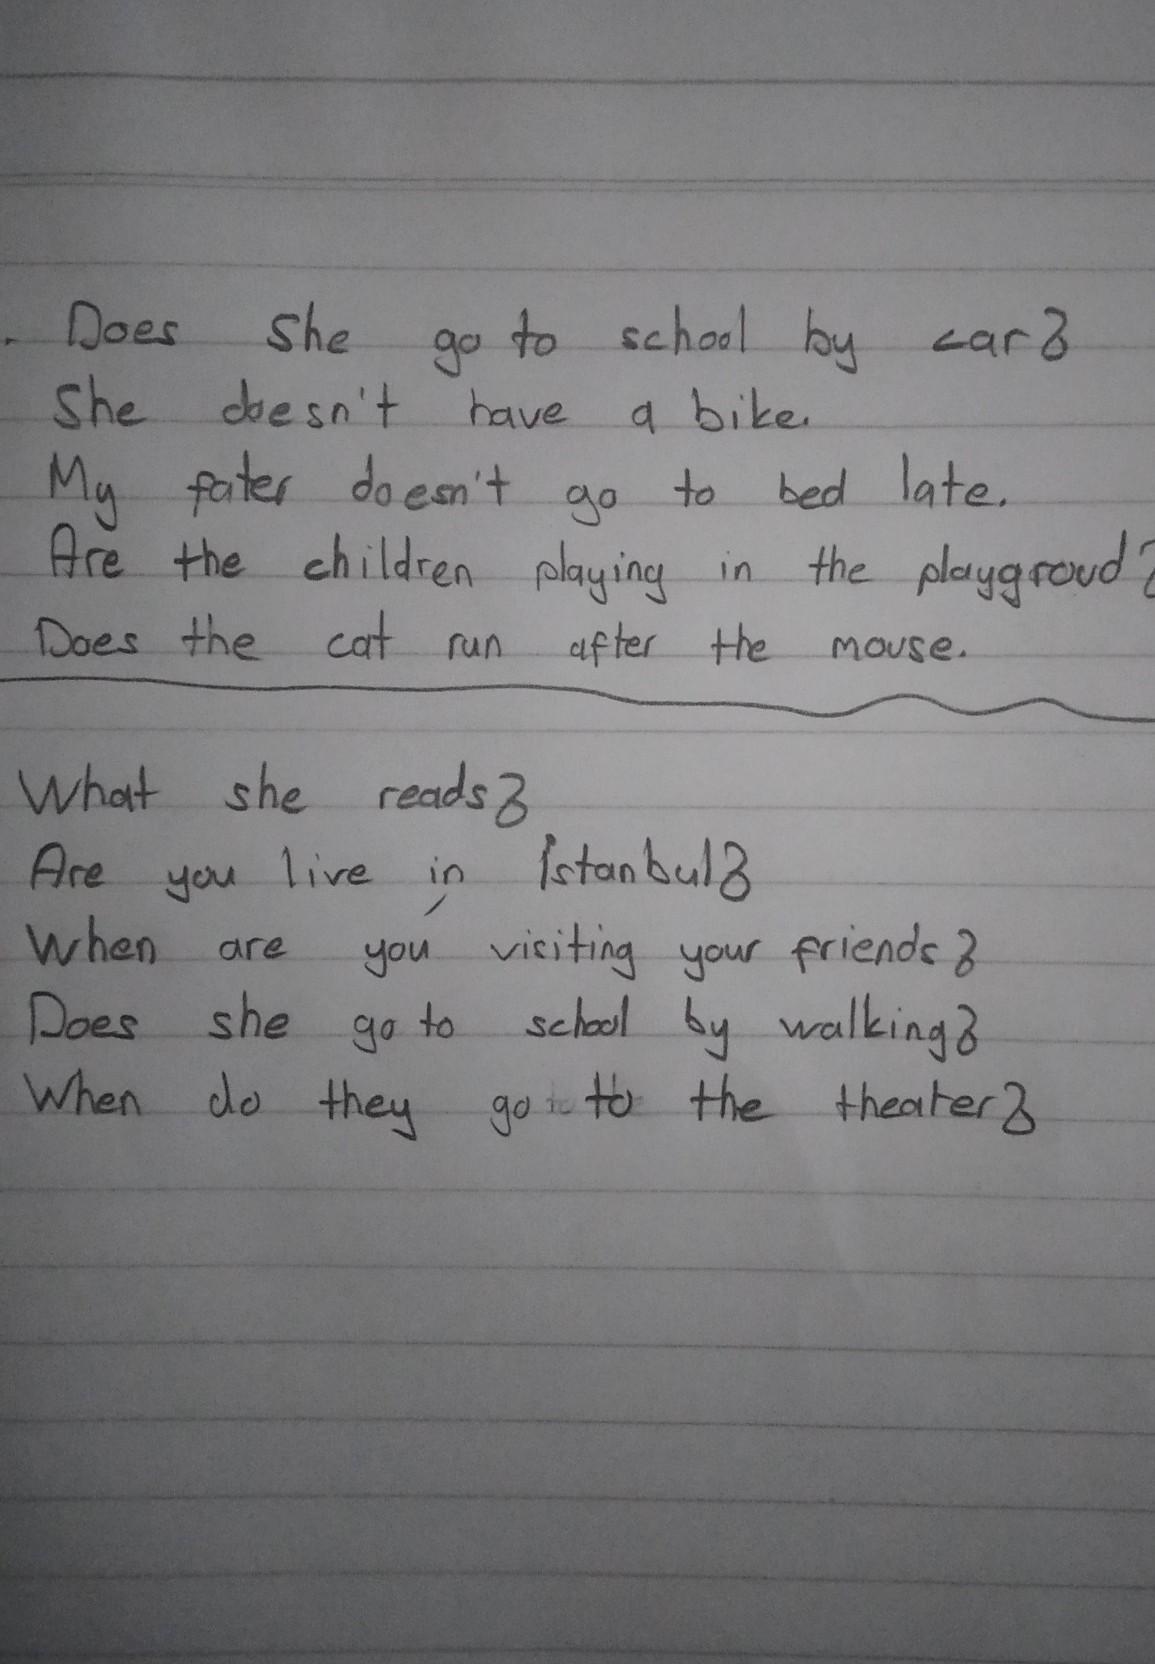 Does she go to school by car?
She doesn't have a bike.
My fater doesn't go to bed late.
Are the children playing in the playgroud?
Does the cat run after the mouse.
What she reads?
Are you live in İstanbul?
When are you visiting your friends?
Does she go to school by walking?
When do they go to the theater?